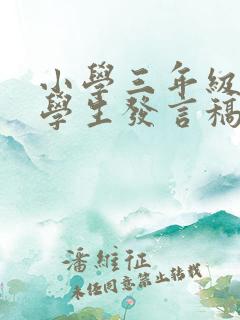 小學三年級
學生發言稿
潘維征
未任同意禁止轉載